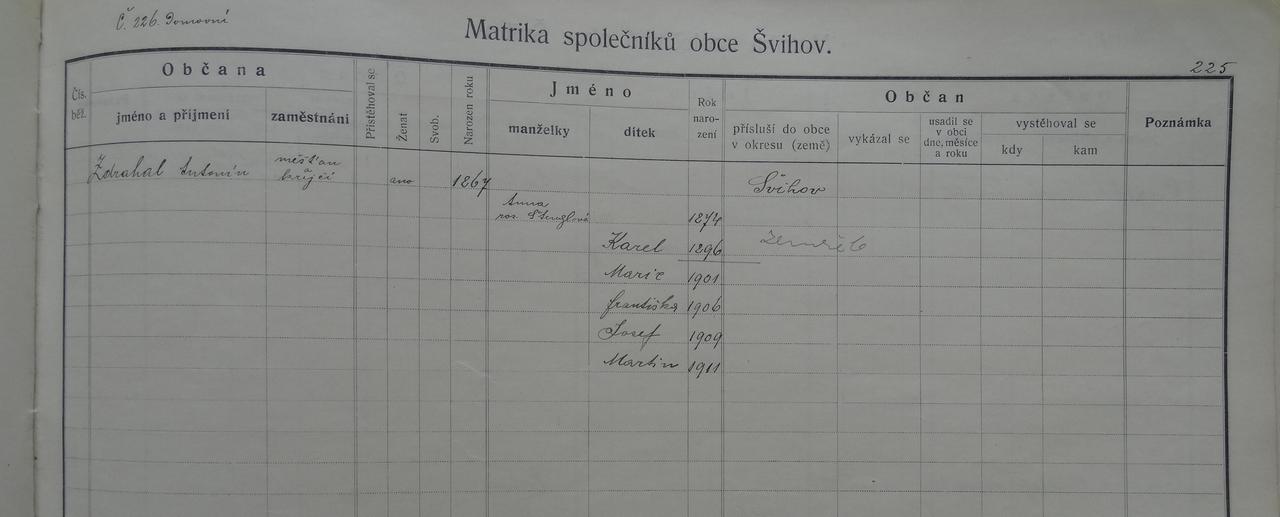 Č. 226. Domovní
Matrika společníků obce Švihov.
225
Občana
Jméno
Občan
Čís. běž.
jméno a příjmení
zaměstnání
Přistěhoval se
Ženat
Svob.
Narozen roku
manželky
dítek
Rok naro- zení
přísluší do obce v okresu (země)
vykázal se
usadil se v obci dne, měsíce a roku
vystěhoval se
kdy
kam
Poznámka
Zdrahal Antonín měšťan a krejčí ano 1867 Švihov
Anna
roz. 1874
Karel 1896 zemřel
Marie 1901
Františka 1906
Josef 1909
Martin 1911